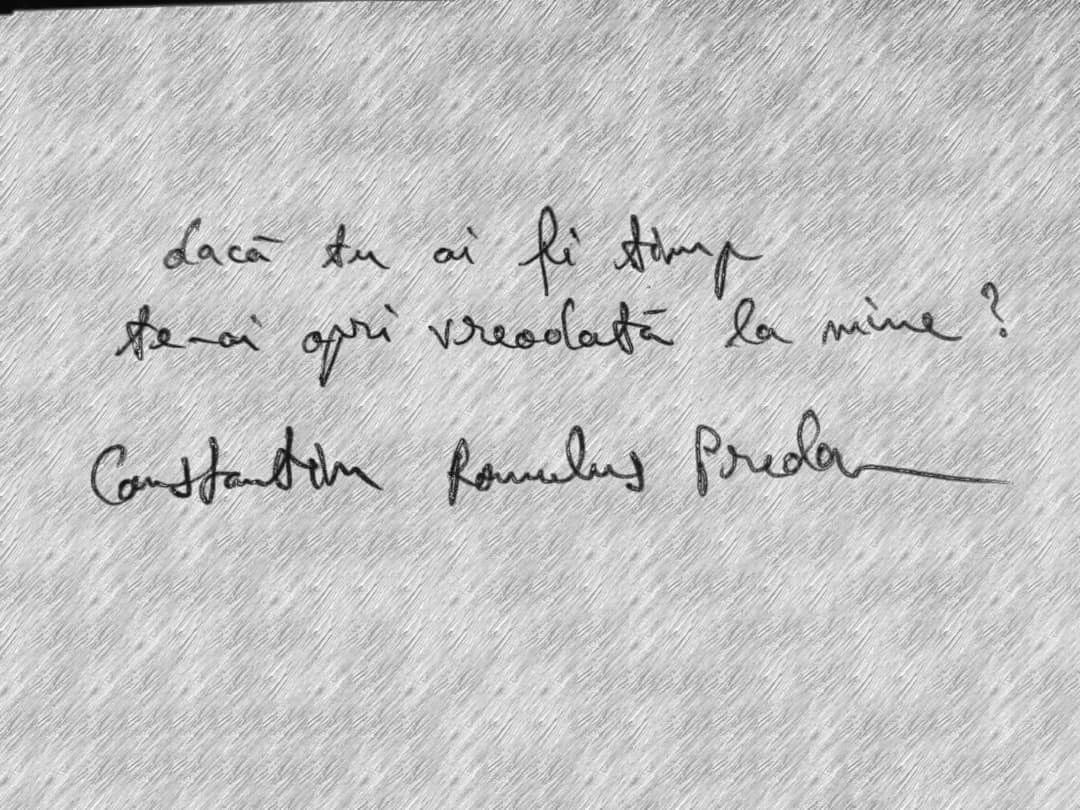 dacă tu ai fi timp
te-ai opri vreodată la mine?
Constantin Romulus Preda